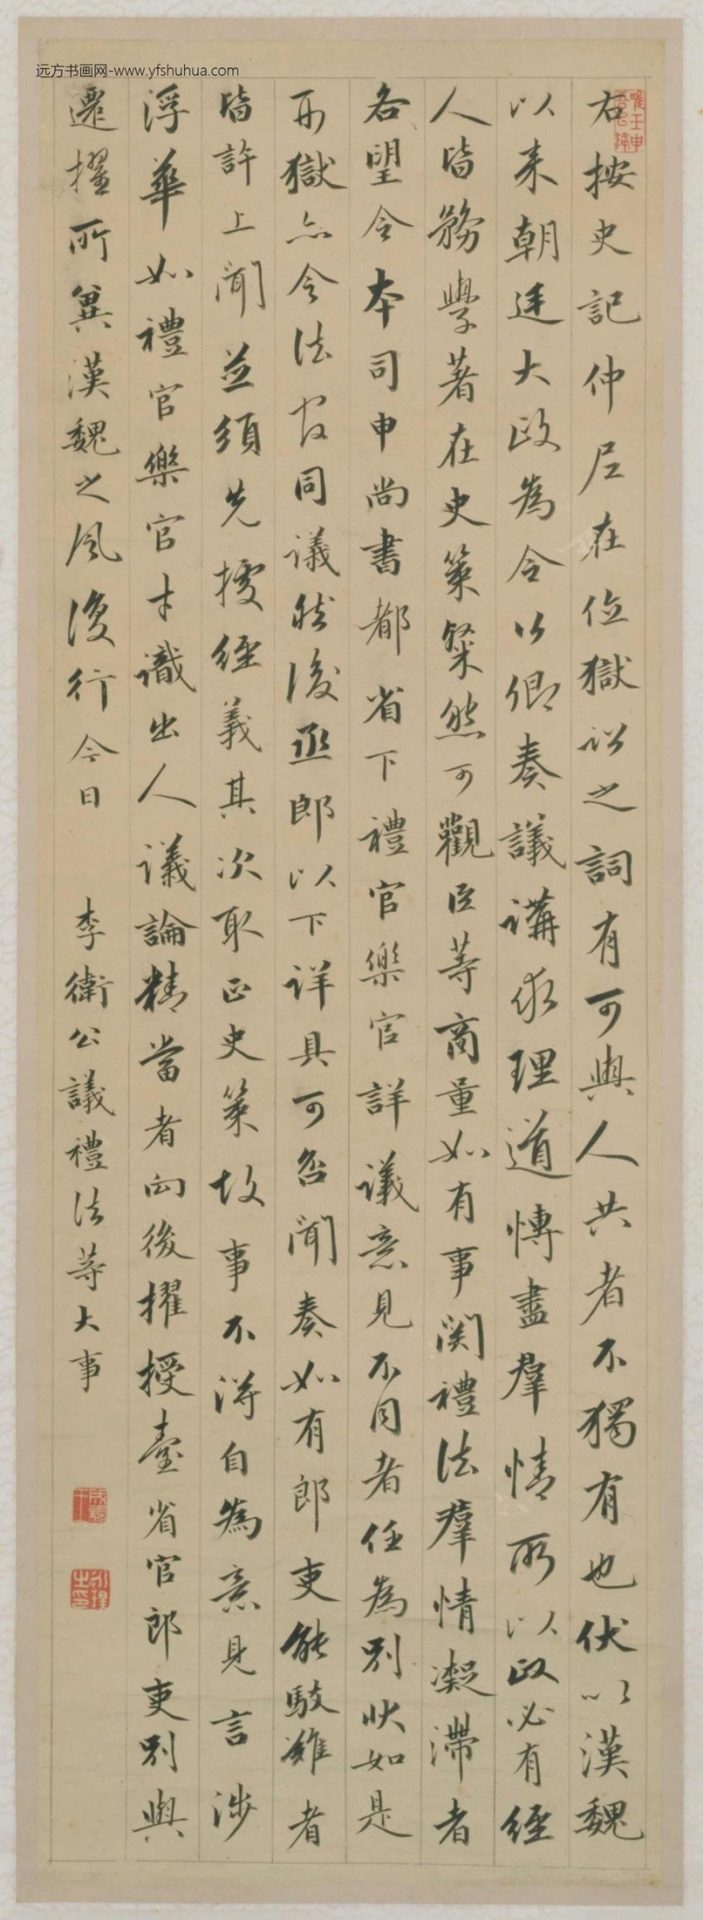 远方书画网-www.yfshuhua.com
右按史記仲尼在位獄訟之詞有可與人共者不獨有也伏以漢魏
以来朝廷大政為令公卿奏議講求理道博盡羣情所以政必有經
人皆務學著在史策粲然可觀臣等商量如有事関禮法羣情凝滯者
各望令本司申尚書都省下禮官樂官詳議意見不同者任為別狀如是
刑獄亦令法官同議然後丞郎以下详具可否聞奏如有郎吏能駮難者
皆許上聞並須先據經義其次取正史策故事不得自為意見言涉
浮華如禮官樂官才識出人議論精當者向後擢授臺省官郎吏別與
遷擢所冀漢魏之風復行今日 李衛公議禮法等大事
成親王
永瑆之印